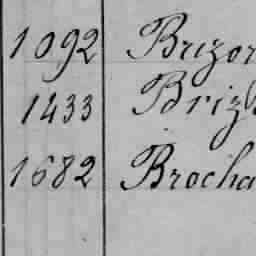 1092 Brizor
1433 Briz
1682 Brocha